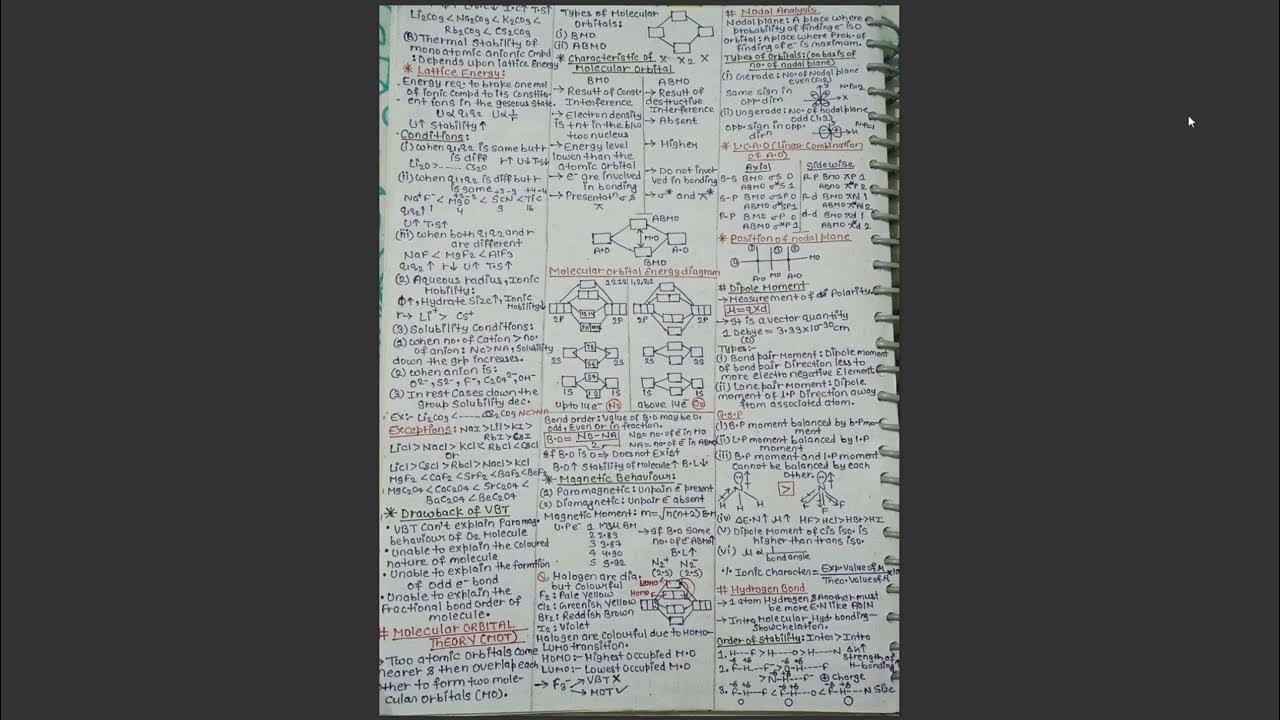 Li2CO3 < Na2CO3 < K2CO3 <
Rb2CO3 < CS2CO3
(B) Thermal Stability of
monoatomic anionic Cmpd
: Depends upon lattice Energy
* Lattice Energy:
Energy req. to brake one mol
of ionic Compd to its Constitu-
ent ions in the geseous state.
U↑ Stability↑
Conditions:
(i) when q1,q2 is same but r
is diff
r↑ U↓ T.S↓
Li2O > ...... Cs2O
(ii) when q1q2 is diff but r
is same
Na+F- < MgO < ScN < TiC
q1q2↑ 1 4 9 16
U↑ T.S↑
(iii) when both q1q2 and r
are different
NaF < MgF2 < AlF3
q1q2↑ r↓ U↑ T.S↑
(2) Aqueous radius, Ionic
Mobility:
Φ↑, Hydrate Size↑, Ionic
Mobility↓
r→ Li+ > Cs+
(3) Solubility Conditions:
(1) when no. of Cation > no.
of anion: Nc>NA, Solubility
down the grp increases.
(2) when anion is:
O2-, S2-, F-, C2O4 2-, OH-
(3) In rest Cases down the
Group Solubility dec.
Ex:- Li2CO3 <...... CS2CO3 Nc>NA
Exceptions: NaI > LiI > KI >
RbI > CsI
LiCl > NaCl > KCl < RbCl < CsCl
or
LiCl > CsCl > RbCl > NaCl > KCl
MgF2 < CaF2 < SrF2 < BaF2 < BeF2
MgC2O4 < CaC2O4 < SrC2O4 <
BaC2O4 < BeC2O4
* Drawback of VBT
• VBT Can't explain Paramag.
behaviour of O2 Molecule
• Unable to explain the Coloured
nature of molecule
• Unable to explain the formtion
of Odd e- bond
• Unable to explain the
Fractional bond Order of
molecule.
# MOLECULAR ORBITAL
THEORY (MOT)
→ Two atomic Orbitals come
nearer & then overlap each
other to form two mole-
cular Orbitals (MO).
Types of Molecular
Orbitals:
(i) BMO
(ii) ABMO
* Characteristic of
Molecular Orbital
X X2 X
BMO ABMO
→ Result of Const.
Interference
→ Result of
destructive
Interference
→ Electron density
is +nt in the b/w
two nucleus
→ Absent
→ Energy level
lower than the
atomic Orbital
→ Higher
→ e- are involved
in bonding
→ Do not invol-
ved in bonding
→ Presentatn σ &
π
→ σ* and π*
ABMO
A.O M.O A.O
BMO
Molecular Orbital Energy diagram
2P 2P 2P 2P
2S 2S 2S 2S
1S 1S 1S 1S
Upto 14e- N2
above 14e- O2
Bond order: Value of B.O may be 0,
odd, Even or in fraction.
B.O = NB-NA/2
NB= no. of e- in MO
NA= no. of e- in ABMO
If B.O is 0 ⇒ Does not Exist
B.O↑ Stability of Molecule↑ B.L↓
* Magnetic Behaviour:
(1) Paramagnetic: Unpair e- present
(2) Diamagnetic: Unpair e- absent
Magnetic Moment: m=√n(n+2) B.M
2 2.83
3 3.87
4 4.90
5 5.92
→ If B.O Same
no. of e- ABMO↑
B.L↑
N2+ N2-
(2.5) (2.5)
Q. Halogen are dia.
but Colourful
F2: Pale Yellow
Cl2: Greenish Yellow
Br2: Reddish Brown
I2: Violet
LUMO
HOMO
Halogen are Colourful due to HOMO-
LUMO transition.
HOMO:- Highest Occupied M.O
LUMO:- Lowest Occupied M.O
→ F3- VBT X
MOT ✓
# Nodal Analysis
Nodal plane: A place where
probability of finding e- is 0
Orbital: A place where Prob. of
finding of e- is maximum.
Types of Orbitals: (on basis of
no. of nodal plane)
(i) Gerade: No. of Nodal plane
even (0,2)
N.P=2
same sign in
opp. dirn
(ii) Ungerade: No. of nodal plane
odd (1,3)
opp. sign in opp.
dirn
* L.C.A.O (Linear Combination
of A.O)
Axial Sidewise
S-S BMO σS 0
ABMO σ*S 1
S-P BMO σSP 0
ABMO σ*SP 1
P-P BMO σP 0
ABMO σ*P 1
P-P BMO πP 1
ABMO π*P 2
P-d BMO πd 1
ABMO π*d 2
d-d BMO πd 1
ABMO π*d 2
* Position of nodal plane
MO
A.O MO A.O
# Dipole Moment
→ Measurement of Polarity.
μ=q×d
→ It is a vector quantity
1 Debye = 3.33×10-30 cm
(D)
Types:-
(i) Bond pair Moment: Dipole moment
of bond pair Direction less to
more electro negative Element.
(ii) Lone pair Moment: Dipole
moment of l.P Direction away
from associated atom.
(i) B.P moment balanced by b.P mo-
ment
(ii) L.P moment balanced by l.P
moment
(iii) B.P moment and l.P moment
Cannot be balanced by each
Other.
N > N
H H H F F F
(iv) ΔE.N↑ μ↑ HF > HCl > HBr > HI
(v) Dipole Moment of cis iso. is
higher than trans iso.
(vi) μ α 1/bond angle
% Ionic Character = Exp. Value of μ / Theo. Value of μ ×100
# Hydrogen Bond
→ 1 atom Hydrogen & Another must
be more E.N like F/O/N
→ Intra Molecular Hydr. bonding-
Show Chelation.
Order of Stability: Inter > Intra
1. H---F > H---O > H---N ΔN↑
Strength of
H-bonding↑
2. F-H---F- > O-H---F
> N-H---F- ⊕ Charge
3. F-H---F < F-H---O < F-H---N Size